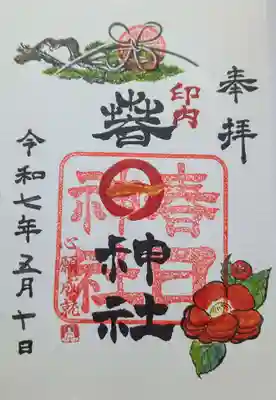 奉拝
印内
春日神社
春日
神社
心願成就
令和七年五月十日